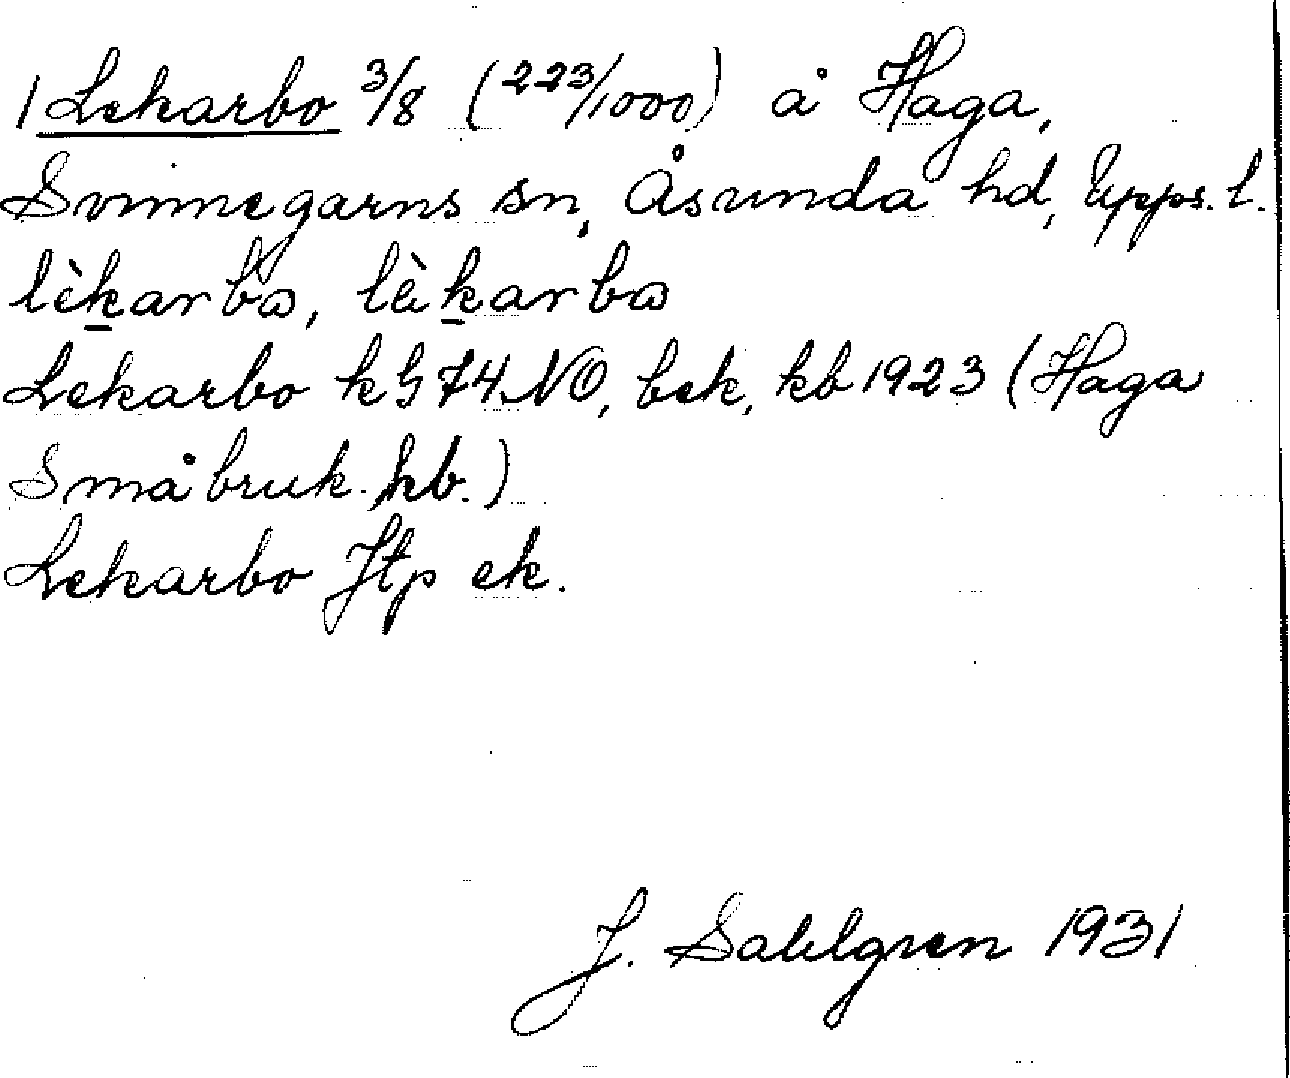 1 Lekarbo 3/8 (223/1000) å Haga,
Svinnegarns sn, Åsunda hd, Upps. l.
lèkarbω, lèkarbω
Lekarbo k G 74 NO, bek, kb 1923 (Haga
Småbruk. kb.)
Lekarbo Jtp ek.
J. Sahlgren 1931